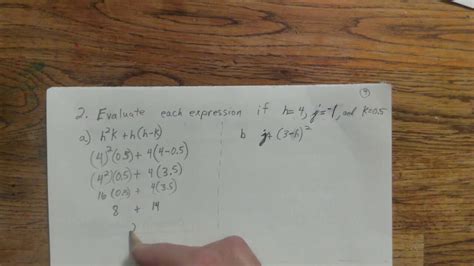 ④
2. Evaluate each expression if h=4, j=-1, and k=0.5
a) h²k + h(h-k)
(4)²(0.5) + 4(4-0.5)
(4²)(0.5) + 4(3.5)
16(0.5) + 4(3.5)
8 + 14
2
b j+(3-h)²